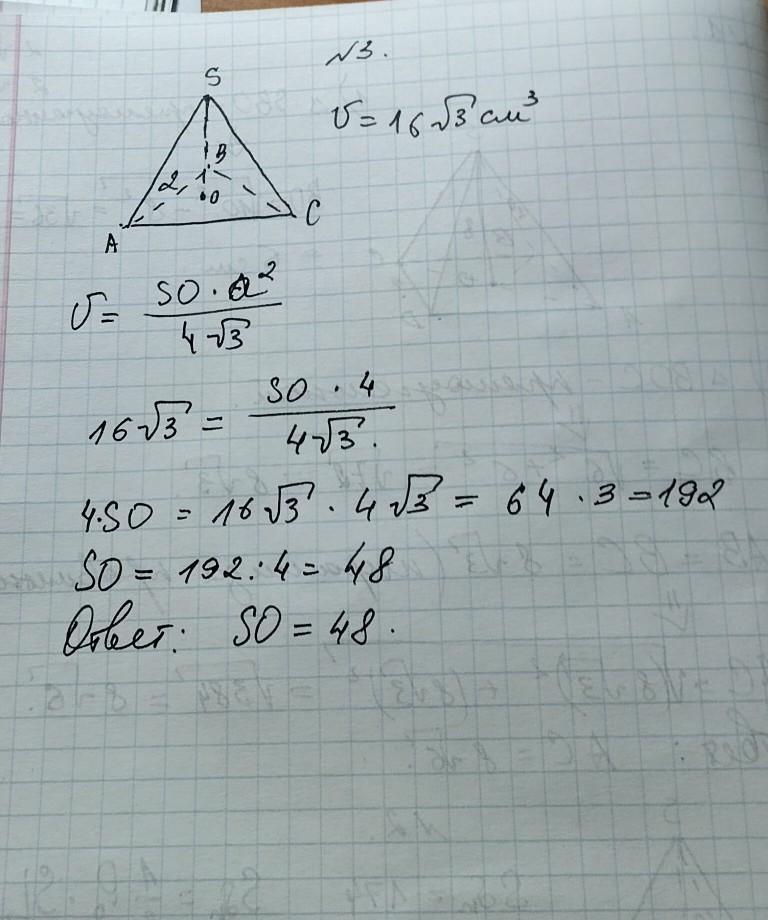 №3.
S
V = 16√3 см³
B
2
O
A
C
V = SO · a² / 4√3
16√3 = SO · 4 / 4√3.
4·SO = 16√3 · 4√3 = 64 · 3 = 192
SO = 192 : 4 = 48
Ответ: SO = 48.